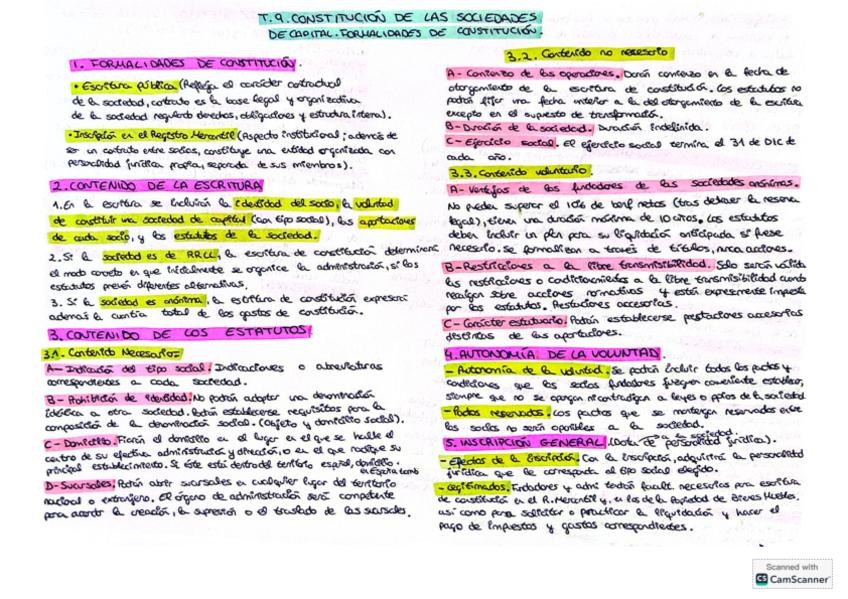 T.9. CONSTITUCIÓN DE LAS SOCIEDADES
DE CAPITAL. FORMALIDADES DE CONSTITUCIÓN.
1. FORMALIDADES DE CONSTITUCIÓN.
• Escritura pública (Refleja el carácter contractual
de la sociedad, contrato es la base legal y organizativa
de la sociedad regulando derechos, obligaciones y estructura interna).
• Inscripción en el Registro Mercantil (Aspecto institucional; además de
ser un contrato entre socios, constituye una entidad organizada con
personalidad jurídica propia, separada de sus miembros).
2. CONTENIDO DE LA ESCRITURA
1. En la escritura se incluirán la identidad del socio, la voluntad
de constituir una sociedad de capital (con tipo social), las aportaciones
de cada socio, y los estatutos de la sociedad.
2. Si la sociedad es de RR.LL, la escritura de constitución determinará
el modo concreto en que inicialmente se organice la administración, si los
estatutos prevén diferentes alternativas.
3. Si la sociedad es anónima, la escritura de constitución expresará
además la cuantía total de los gastos de constitución.
3. CONTENIDO DE LOS ESTATUTOS
3.1. Contenido Necesario:
A- Indicación del tipo social. Indicaciones o abreviaturas
correspondientes a cada sociedad.
B- Prohibición de identidad. No podrán adoptar una denominación
idéntica a otra sociedad. Podrán establecerse requisitos para la
composición de la denominación social. (Objeto y domicilio social).
C- Domicilio. Fijarán el domicilio en el lugar en el que se halle el
centro de su efectiva administración y dirección, o en el que radique su
principal establecimiento. Si éste está dentro del territorio español, domicilio
en España tamb
D- Sucursales. Podrán abrir sucursales en cualquier lugar del territorio
nacional o extranjero. El órgano de administración será competente
para acordar la creación, la supresión o el traslado de las sucursales.
3.2. Contenido no necesario
A- Comienzo de las operaciones. Darán comienzo en la fecha de
otorgamiento de la escritura de constitución. Los estatutos no
podrán fijar una fecha anterior a la del otorgamiento de la escritura
excepto en el supuesto de transformación.
B- Duración de la sociedad. Duración indefinida.
C- Ejercicio social. El ejercicio social termina el 31 de DIC de
cada año.
3.3. Contenido voluntario.
A- Ventajas de los fundadores de las sociedades anónimas.
No pueden superar el 10% de benf netos (tras detraer la reserva
legal), tienen una duración máxima de 10 años. Los estatutos
deben incluir un plan para su liquidación anticipada si fuese
necesario. Se formalizan a través de títulos, nunca acciones.
B- Restricciones a la libre transmisibilidad. Solo serán válidas
las restricciones o condicionamientos a la libre transmisibilidad cuando
recaigan sobre acciones nominativas y están expresamente impuestas
por los estatutos. Prestaciones accesorias.
C- Carácter estatutario. Podrán establecerse prestaciones accesorias
distintas de las aportaciones.
4. AUTONOMÍA DE LA VOLUNTAD.
- Autonomía de la voluntad. Se podrán incluir todos los pactos y
condiciones que los socios fundadores juzguen conveniente establecer,
siempre que no se opongan ni contradigan a leyes o ppios de la sociedad
- Pactos reservados. Los pactos que se mantengan reservados entre
los socios no serán oponibles a la sociedad.
5. INSCRIPCIÓN GENERAL (Dota de personalidad jurídica).
la sociedad.
- Efectos de la inscripción. Con la inscripción, adquirirá la personalidad
jurídica que le corresponda al tipo social elegido.
- Legitimados. Fundadores y admi tendrán facult. necesarias para escritura
de constitución en el R. Mercantil y, en los de la Propiedad de Bienes Muebles,
así como para solicitar o practicar la liquidación y hacer el
pago de impuestos y gastos correspondientes.
Scanned with
CS CamScanner